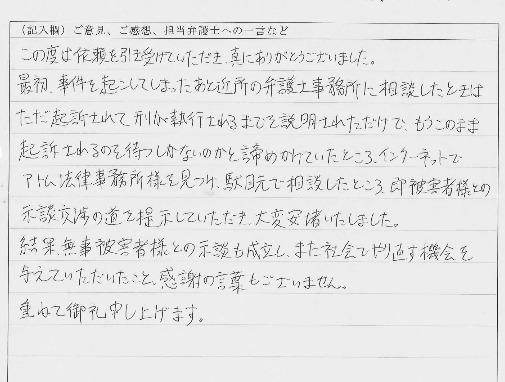 (記入欄)ご意見、ご感想、担当弁護士への一言など
この度は依頼を引き受けていただき、真にありがとうございました。
最初、事件を起こしてしまったあと近所の弁護士事務所に相談したときは
ただ起訴されて刑が執行されるまでを説明されただけで、もうこのまま
起訴されるのを待つしかないのかと諦めかけていたところ、インターネットで
アトム法律事務所様を見つけ、駄目元で相談したところ、即被害者様との
示談交渉の道を提示していただき、大変安堵いたしました。
結果、無事被害者様との示談も成立し、また社会でやり直す機会を
与えていただいたこと、感謝の言葉もございません。
重ねて御礼申し上げます。